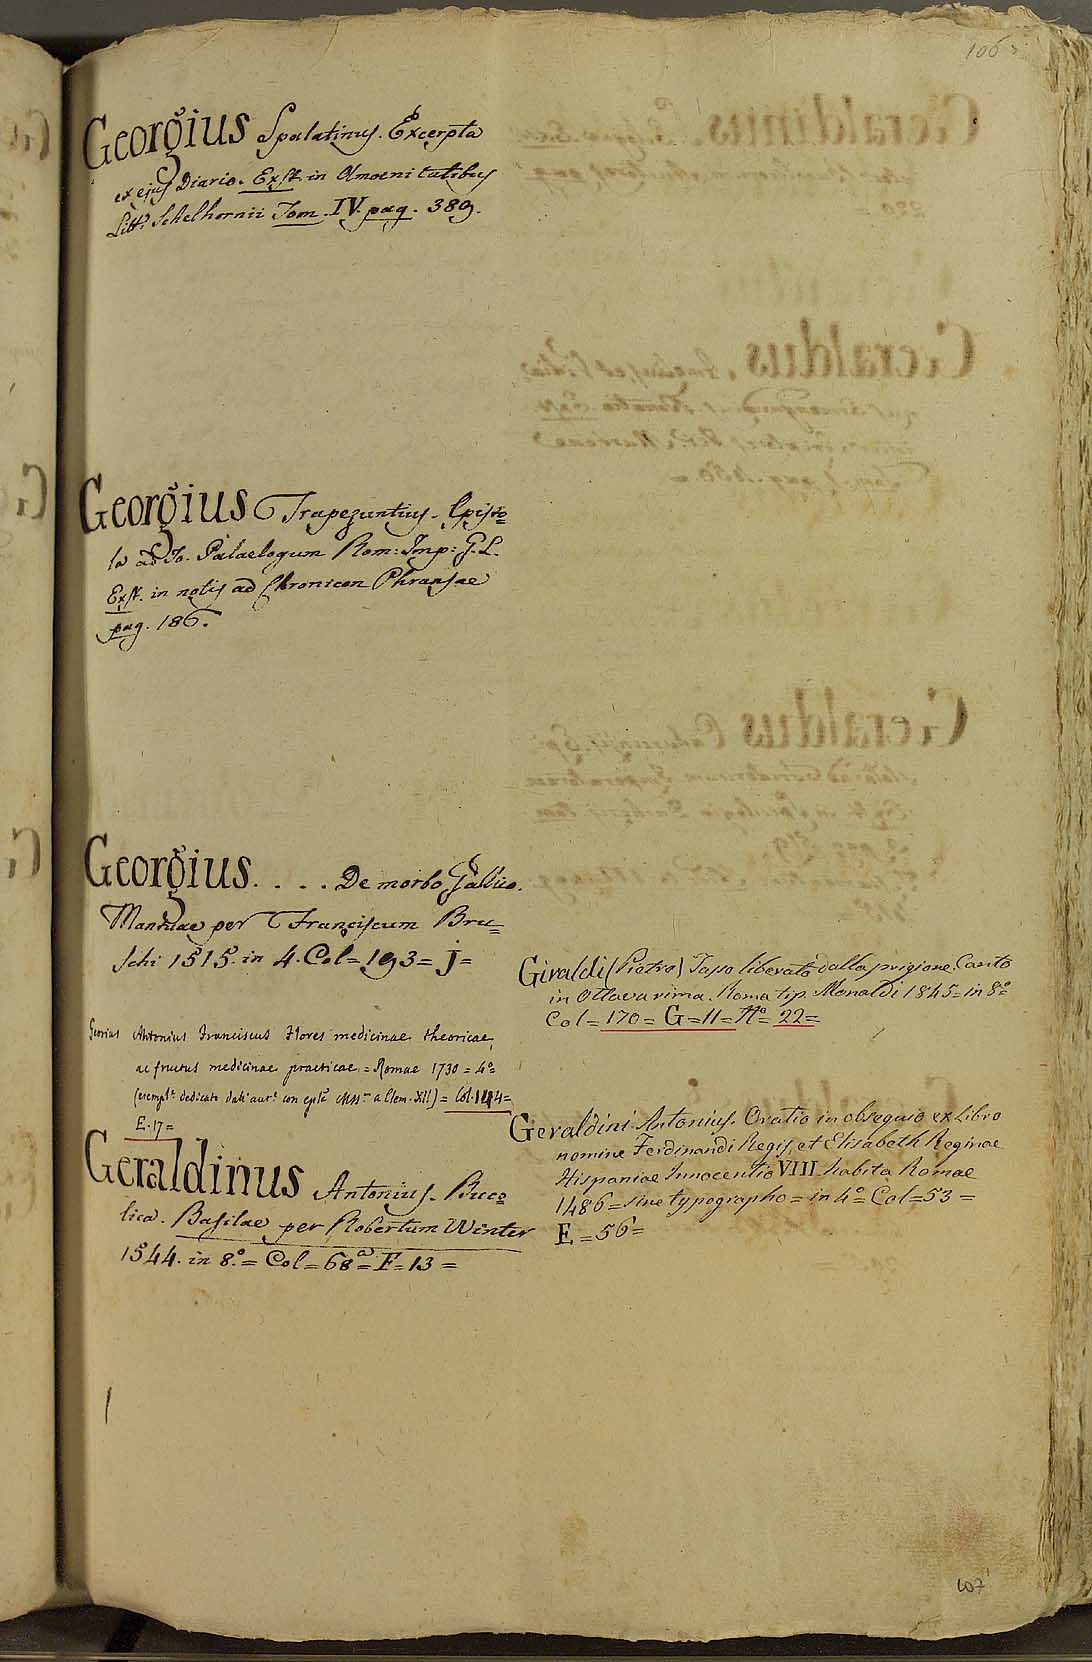 106
Georgius Spalatinus. Excerpta
ex ejus Diario. Exst. in Amoenitatibus
Litt. Schelhornii Tom. IV. pag. 389.
Georgius Trapezuntius. Episto=
la ad Jo. Palaelogum Rom: Imp: G. L.
Exst. in notis ad Chronicon Phransae
pag. 186.
Georgius. . . . De morbo Gallico.
Mantuae per Franciscum Bru=
schi 1515. in 4. Col=193= j=
Georius Antonius Franciscus Flores medicinae theoricae,
ac fructus medicinae practicae = Romae 1730 = 4º=
(exempl. dedicato dall'aut. con MSS a Clem. XII) = Col. 144=
E. 17=
Geraldinus Antonius. Buco=
lica. Basilae per Robertum Winter
1544. in 8.º= Col= 68ª= F= 13 =
Giraldi (Pietro) Tasso liberato dalla prigione. Canto
in Ottava rima. Roma tip. Monaldi 1845= in 8º=
Col= 170= G=11= Nº= 22=
Geraldini Antonius. Oratio in obsequio ex Libro
nomine Ferdinandi Regis, et Elisabeth Reginae
Hispaniae Innocentio VIII habita Romae
1486= sine typographo= in 4º= Col=53=
E=56=
107